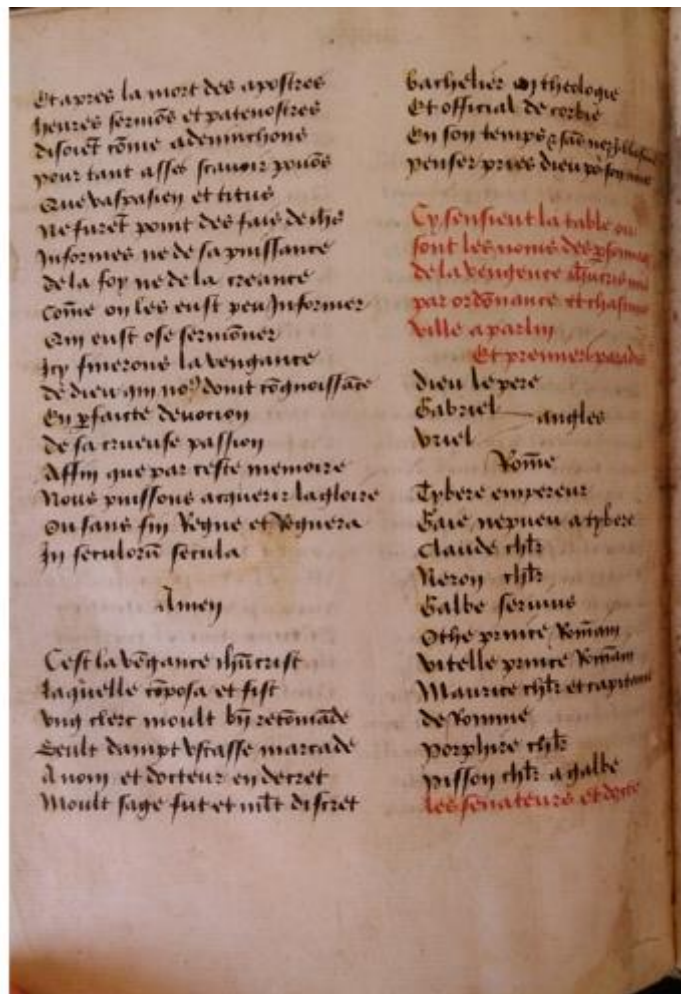 Et apres la mort des apostres
heures sermōs et patenostres
disoiēt cōme a demuchons
pour tant asses scavoir povōs
Que vaspasien et titus
Ne furēt point des fais de ihs
Informes ne de sa puissance
de la foy ne de la creance
Cōme on les eust peu Informer
Qui eust ose sermōner
Icy finerons la vengance
de dieu qui noꝰ doint cōgnoissāce
En ꝑfaicte devocion
de sa crueuse passion
Affin que par ceste memoire
Nous puissons acquerir la gloire
Ou sans fin Regne et Regnera
In seculorū secula
Amen
C'est la vēgance ihūcrist
laquelle cōposa et fist
vng clerc moult bn̄ renōmade
Seult dampt vstasse marcade
A nom et docteur en decret
Moult sage fut et ml̄t discret
bachelier en theologie
Et official de corbie
En son temps
penser pries dieu
Cy sensieut la table ou
sont les noms des
de la vengence ihūcrist
par ordōnance et chascune
ville a par luy
Et premier paradis
dieu le pere
Gabriel angles
vriel
Rom̄e
Tybere empereur
Gaie nepueu a tybere
Claude chlr̄
Neron chlr̄
Galbe servius
Othe prince Romain
vitelle prince Romain
Maurice chlr̄ et capitaine
de Romme
porphire chlr̄
pisson chlr̄ a galbe
les senateurs et